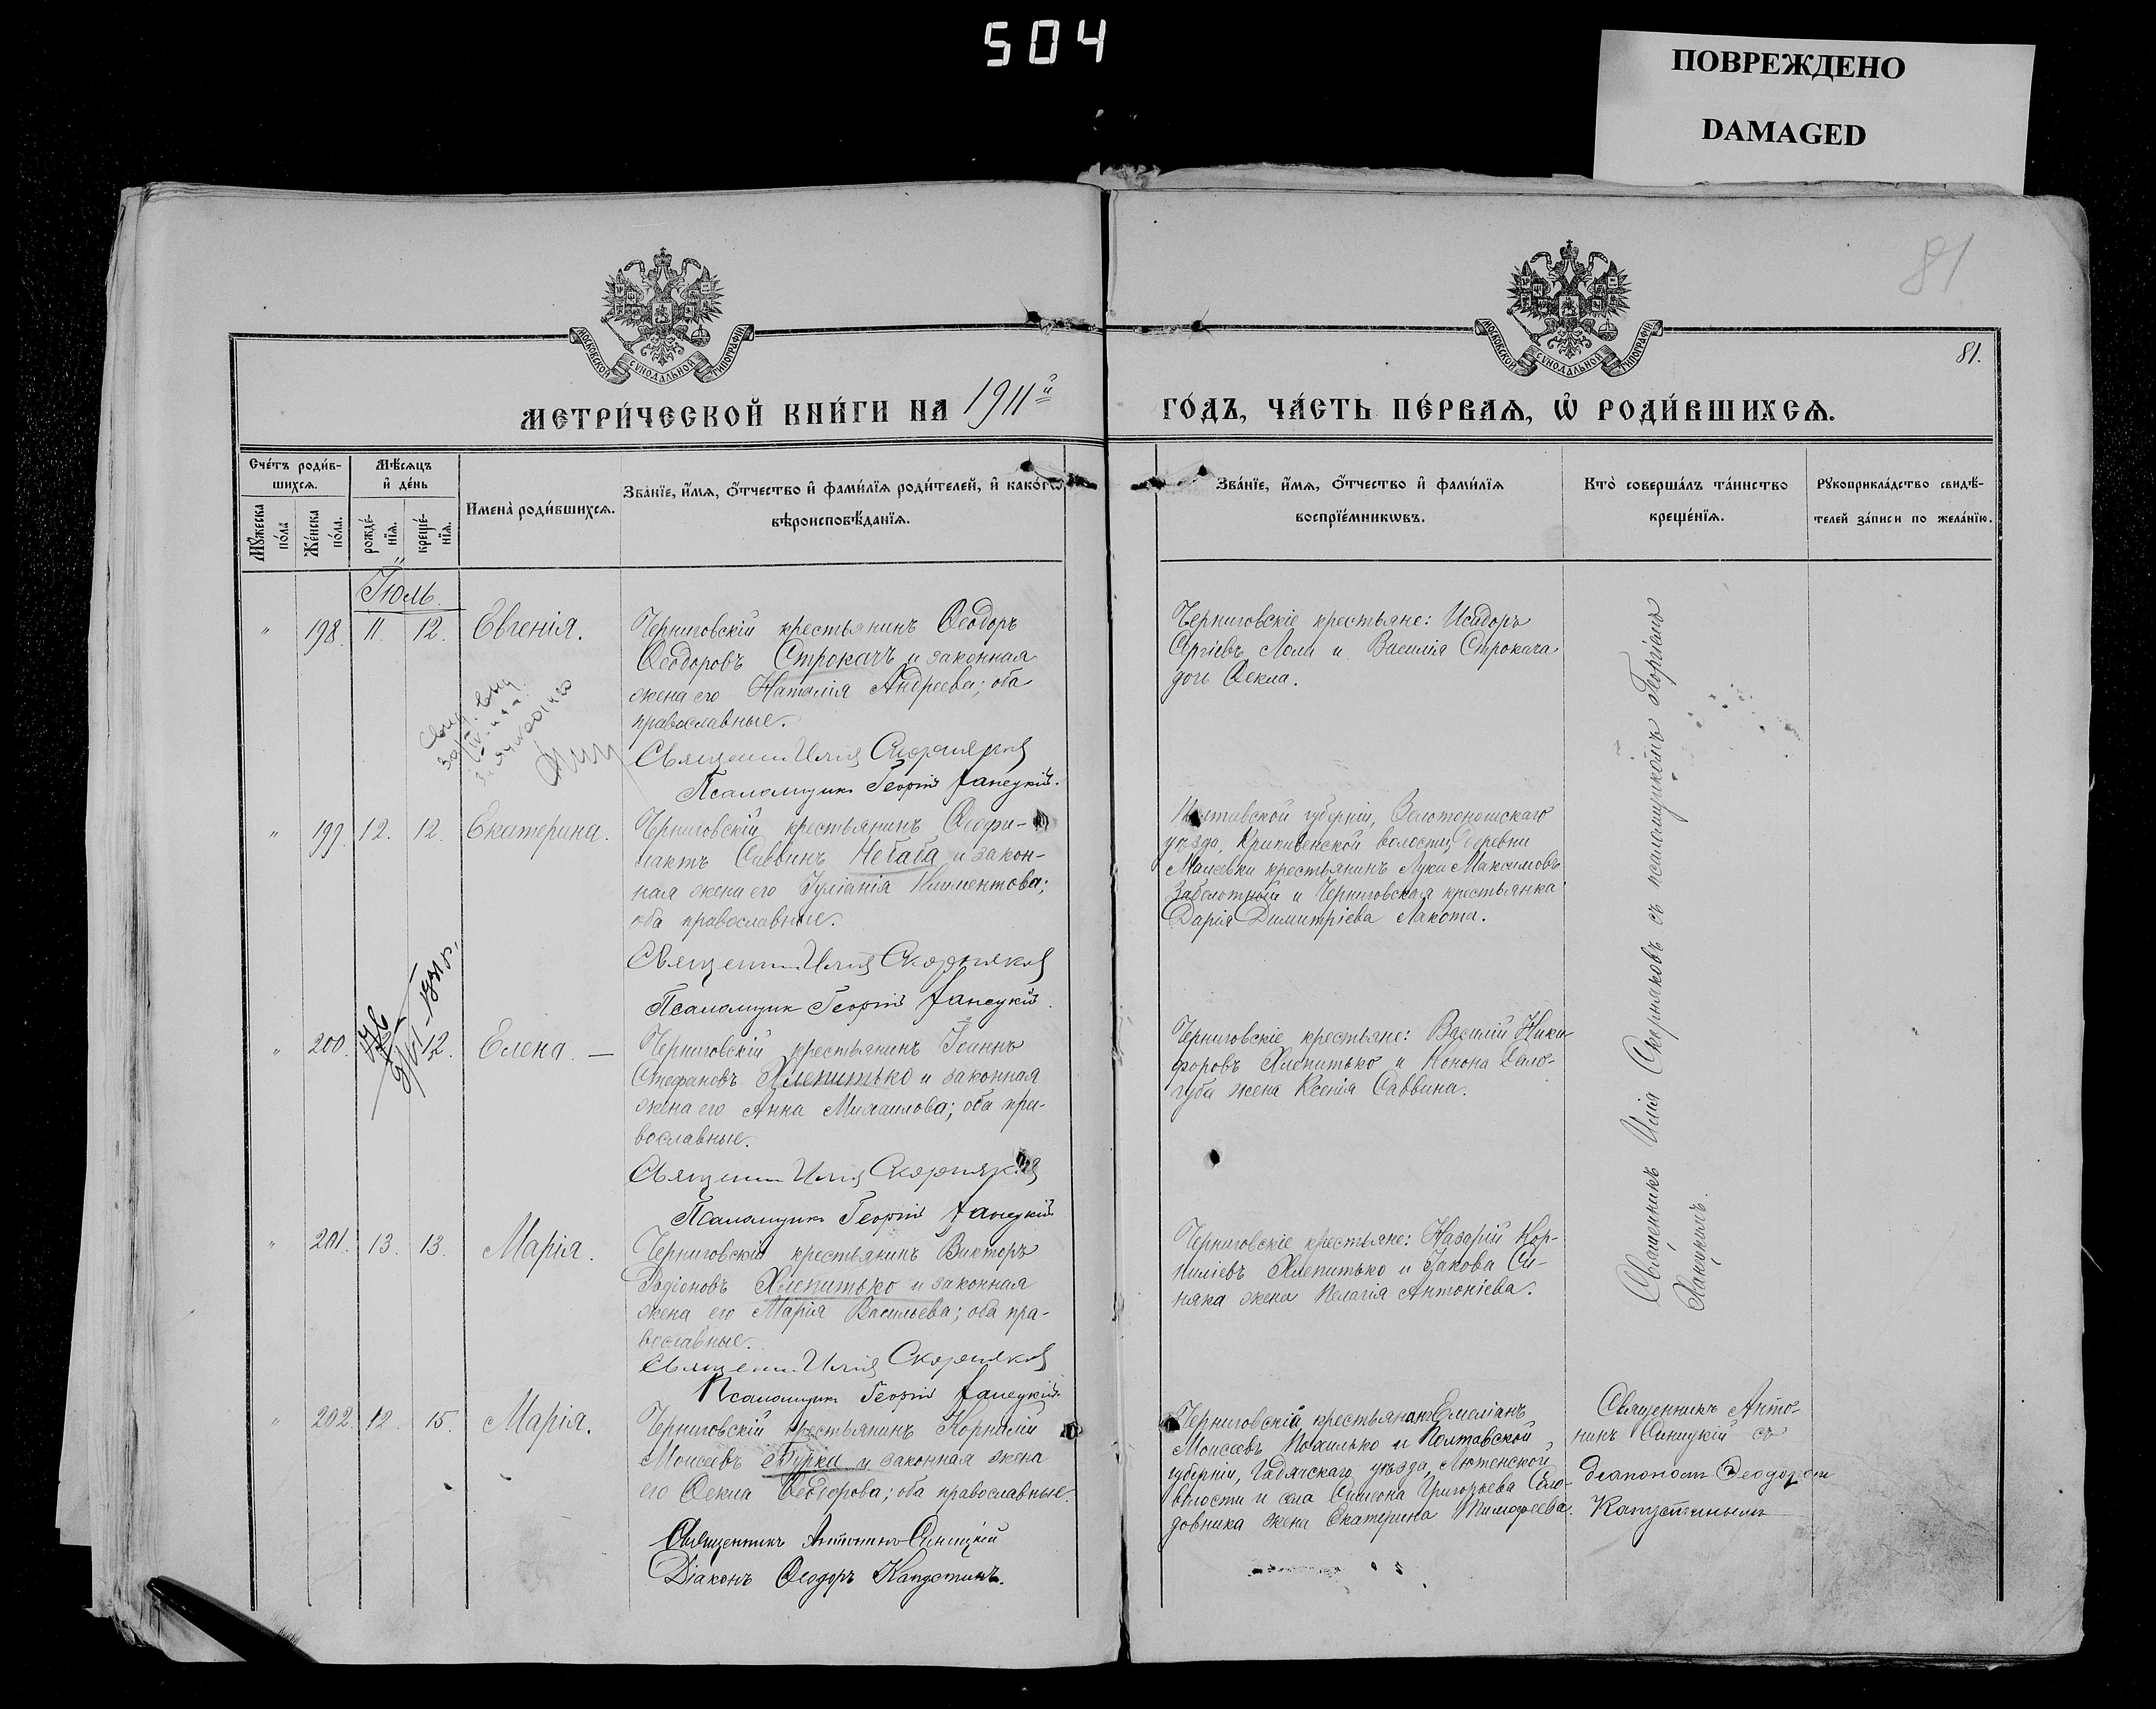 504
ПОВРЕЖДЕНО
DAMAGED
81
81.
МОСКОВСКОЙ СУНОДАЛЬНОЙ ТИПОГРАФІИ
МОСКОВСКОЙ СУНОДАЛЬНОЙ ТИПОГРАФІИ
МЕТРИ́ЧЕСКОЙ КНИ́ГИ НА 1911й ГО́ДЪ, ЧА́СТЬ ПЕ́РВАѦ, Ѡ҆ РОДИ́ВШИХСѦ.
Сче́тъ роди́в-
шихсѧ.
Мꙋ́жеска
по́ла
Же́нска
по́ла.
Мѣ́сѧцъ
и҆ де́нь
рожде́-
нїѧ.
креще́-
нїѧ.
Имена̀ роди́вшихсѧ.
Зва́нїе, и҆́мѧ, ѻ҆́тчество и҆ фами́лїѧ роди́телей, и҆ како́гѡ
вѣроисповѣ́данїѧ.
Зва́нїе, и҆́мѧ, ѻ҆́тчество и҆ фами́лїѧ
воспрїе́мникѡвъ.
Кто̀ соверша́лъ та́инство
креще́нїѧ.
Рꙋкоприкла́дство свидѣ́-
телей за́писи по жела́нїю.
Іюль.
" 198. 11. 12. Евгенія.
Черниговскій крестьянинъ Ѳеодоръ
Ѳеодоровъ Строкачъ и законная
жена его Наталія Андреева; оба
православные.
Священн. Илія Скорняковъ
Псаломщик Георгій Ханецкій.
Черниговскіе крестьяне: Исидоръ
Сергіевъ Лола и Василія Строкача
дочь Ѳекла.
" 199. 12. 12. Екатерина.
Черниговскій крестьянинъ Ѳеофи-
лактъ Саввинъ Небаба и закон-
ная жена его Іуліанія Климентова;
оба православные.
Священн. Илія Скорняковъ
Псаломщик Георгій Ханецкій.
Полтавской губерніи, Золотоношскаго
уѣзда, волости, деревни
крестьянинъ Лука Максимовъ
Заболотный и Черниговская крестьянка
Дарія Димитріева Лакота.
" 200. 12. Елена. —
Черниговскій крестьянинъ Іоаннъ
Стефановъ Хлепитько и законная
жена его Анна Михаилова; оба пра-
вославные.
Священн. Илія Скорняковъ
Псаломщик Георгій Ханецкій
Черниговскіе крестьяне: Василій Ники-
форовъ Хлепитько и Конона
жена Ксенія Саввина.
" 201. 13. 13. Марія.
Черниговскій крестьянинъ Викторъ
Родіоновъ Хлепитько и законная
жена его Марія Васильева; оба пра-
вославные.
Священн. Илія Скорняковъ
Псаломщик Георгій Ханецкій.
Черниговскіе крестьяне: Назарій Кор-
ниліевъ Хлепитько и Іакова Си-
няка жена Пелагія Антоніева.
Священникъ Илія Скорняковъ съ псаломщикомъ Георгіемъ
Ханецкимъ.
" 202. 12. 15. Марія.
Черниговскій крестьянинъ Корнилій
Моисеевъ Бурка и законная жена
его Ѳекла Ѳеодорова; оба православные.
Священникъ Антонинъ Синицкій
Діаконъ Ѳеодоръ Капустинъ.
Черниговскій крестьянинъ Емеліанъ
Моисеевъ Похилько и Полтавской
губерніи, Гадячскаго уѣзда, Лютенской
волости и села Симеона Григорьева Соло-
довника жена Екатерина Тимофеева.
Священникъ Анто-
нинъ Синицкій съ
діакономъ Ѳеодоромъ
Капустинымъ